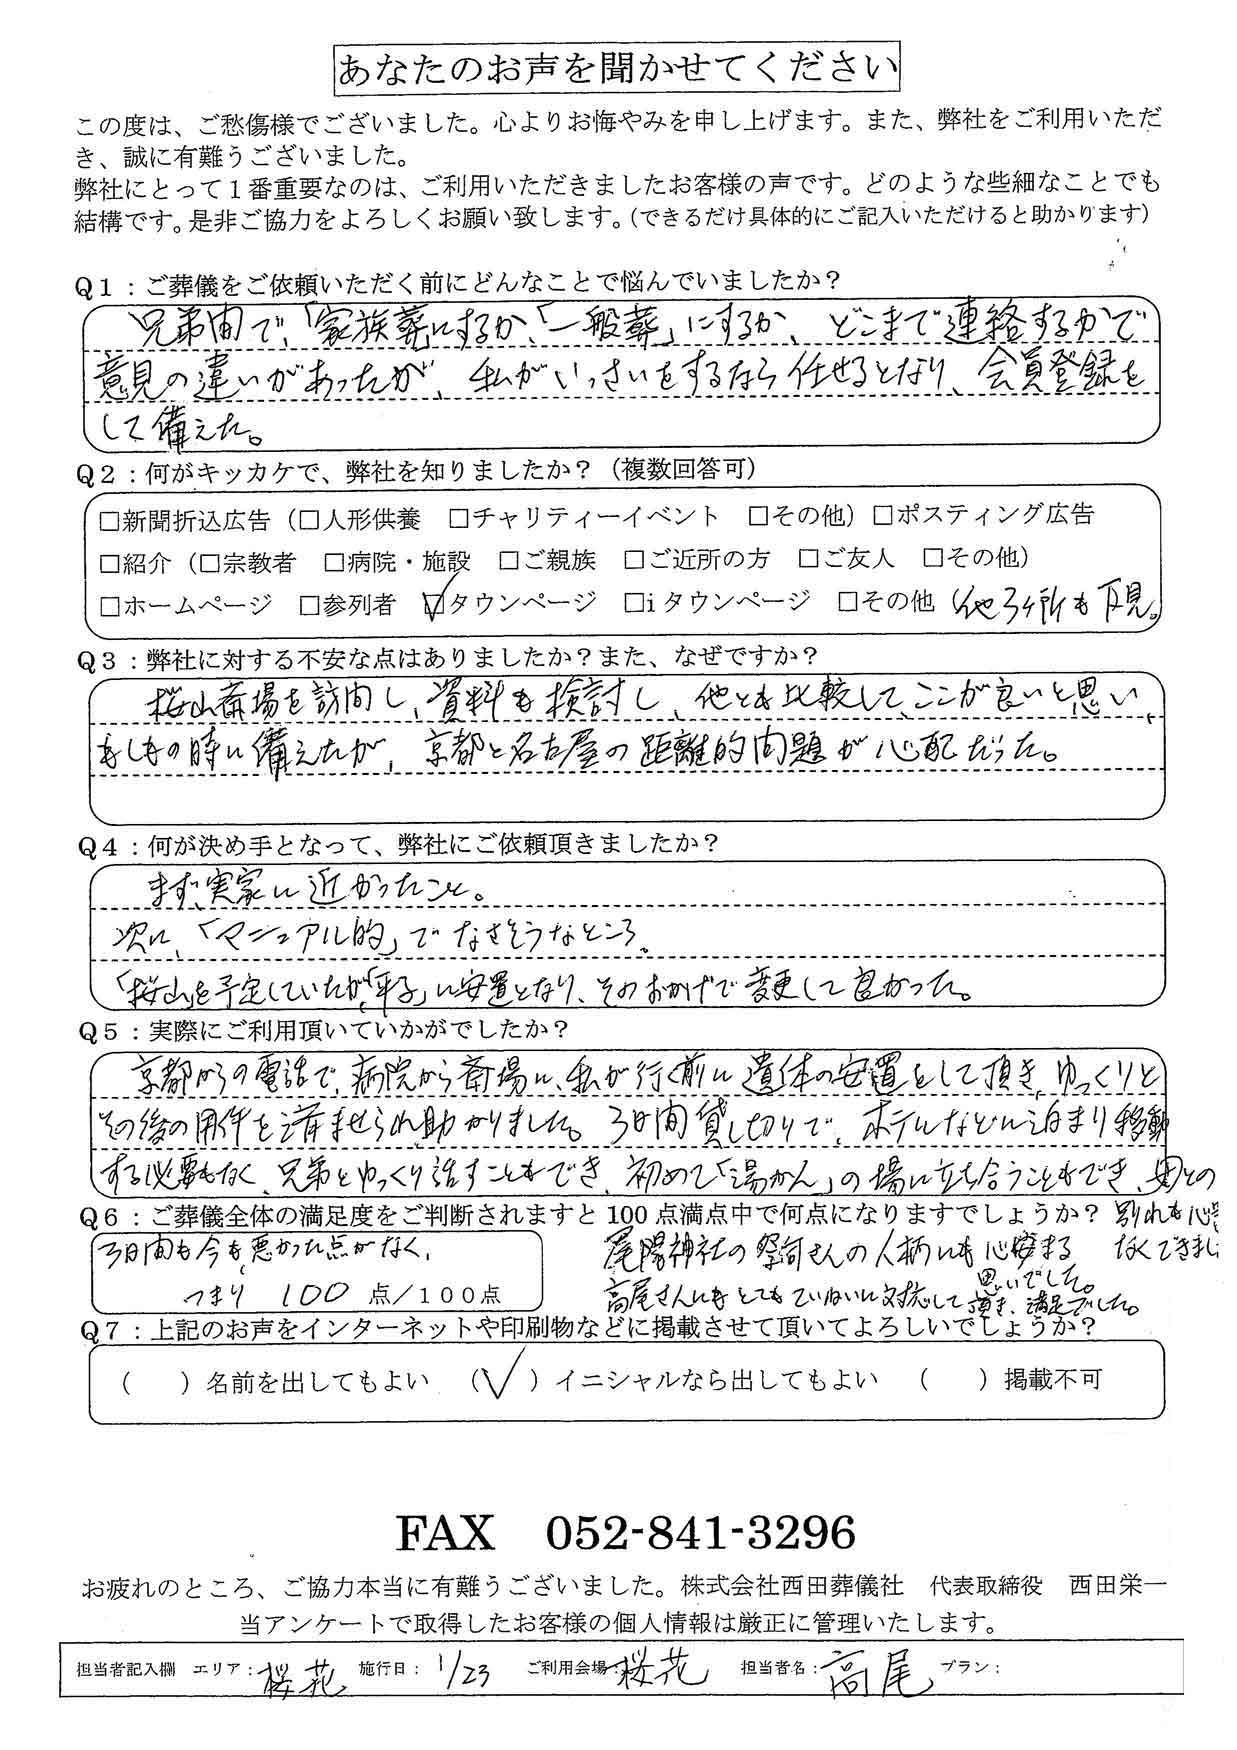 あなたのお声を聞かせてください
この度は、ご愁傷様でございました。心よりお悔やみを申し上げます。また、弊社をご利用いただ
き、誠に有難うございました。
弊社にとって1番重要なのは、ご利用いただきましたお客様の声です。どのような些細なことでも
結構です。是非ご協力をよろしくお願い致します。（できるだけ具体的にご記入いただけると助かります）
Q1：ご葬儀をご依頼いただく前にどんなことで悩んでいましたか？
兄弟間で、「家族葬にするか、「一般葬」にするか、どこまで連絡するかで
意見の違いがあったが、私がいっさいをするなら任せるとなり、会員登録を
して備えた。
Q2：何がキッカケで、弊社を知りましたか？（複数回答可）
□新聞折込広告（□人形供養 □チャリティーイベント □その他）□ポスティング広告
□紹介（□宗教者 □病院・施設 □ご親族 □ご近所の方 □ご友人 □その他）
□ホームページ □参列者 ☑タウンページ □iタウンページ □その他 （他3ヶ所も下見。
Q3：弊社に対する不安な点はありましたか？また、なぜですか？
桜山斎場を訪問し、資料も検討し、他とも比較して、ここが良いと思い、
もしもの時に備えたが、京都と名古屋の距離的問題が心配だった。
Q4：何が決め手となって、弊社にご依頼頂きましたか？
まず、実家に近かったこと。
次に、「マニュアル的」でなさそうなところ。
「桜山」を予定していたが、「平子」に安置となり、そのおかげで変更して良かった。
Q5：実際にご利用頂いていかがでしたか？
京都からの電話で、病院から斎場に、私が行く前に遺体の安置をして頂き、ゆっくりと
その後の用件を済ませられ、助かりました。3日間貸し切りで、ホテルなどに泊まり移動
する必要もなく、兄弟とゆっくり話すこともでき、初めて「湯かん」の場に立ち合うこともでき、母との
別れも心
なくできまし
Q6：ご葬儀全体の満足度をご判断されますと100点満点中で何点になりますでしょうか？
3日間も今も悪かった点がなく、
つまり 100 点／100点
尾陽神社の祭司さんの人柄にも心安まる
思いでした。
高尾さんにもとてもていねいに対応して頂き、満足でした。
Q7：上記のお声をインターネットや印刷物などに掲載させて頂いてよろしいでしょうか？
（ ）名前を出してもよい （✓）イニシャルなら出してもよい （ ）掲載不可
FAX 052-841-3296
お疲れのところ、ご協力本当に有難うございました。株式会社西田葬儀社 代表取締役 西田栄一
当アンケートで取得したお客様の個人情報は厳正に管理いたします。
担当者記入欄 エリア：桜花 施行日：1/23 ご利用会場：桜花 担当者名：高尾 プラン：